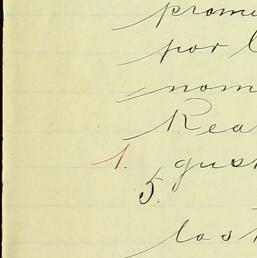 prome
por l
nom
Rea
1. gust
5.
las